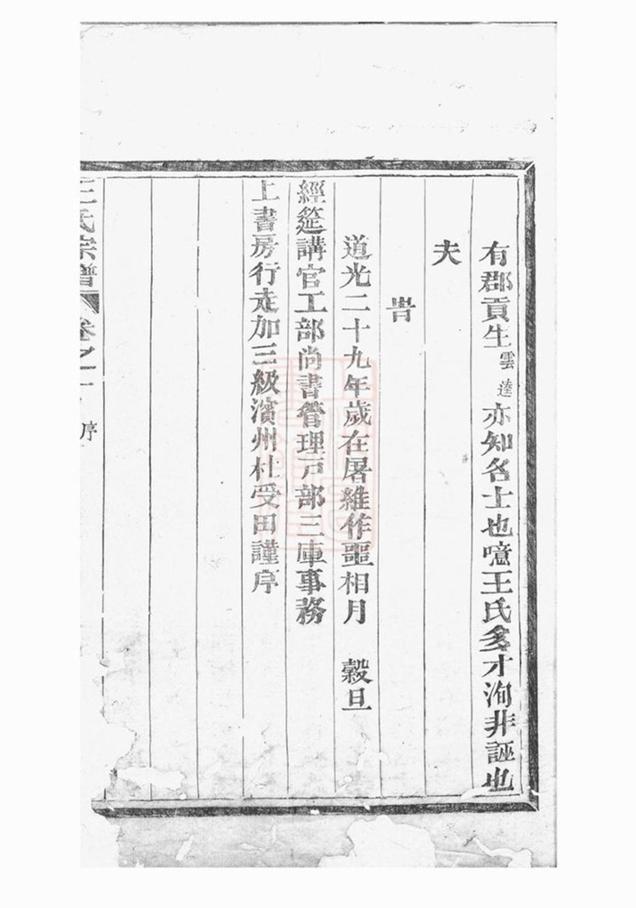 有郡貢生雲逵亦知名士也噫王氏多才洵非誣也
夫
旹
道光二十九年歲在屠維作噩相月 穀旦
經筵講官工部尚書管理戶部三庫事務
上書房行走加三級濱州杜受田謹序
王氏宗譜 卷之一 序